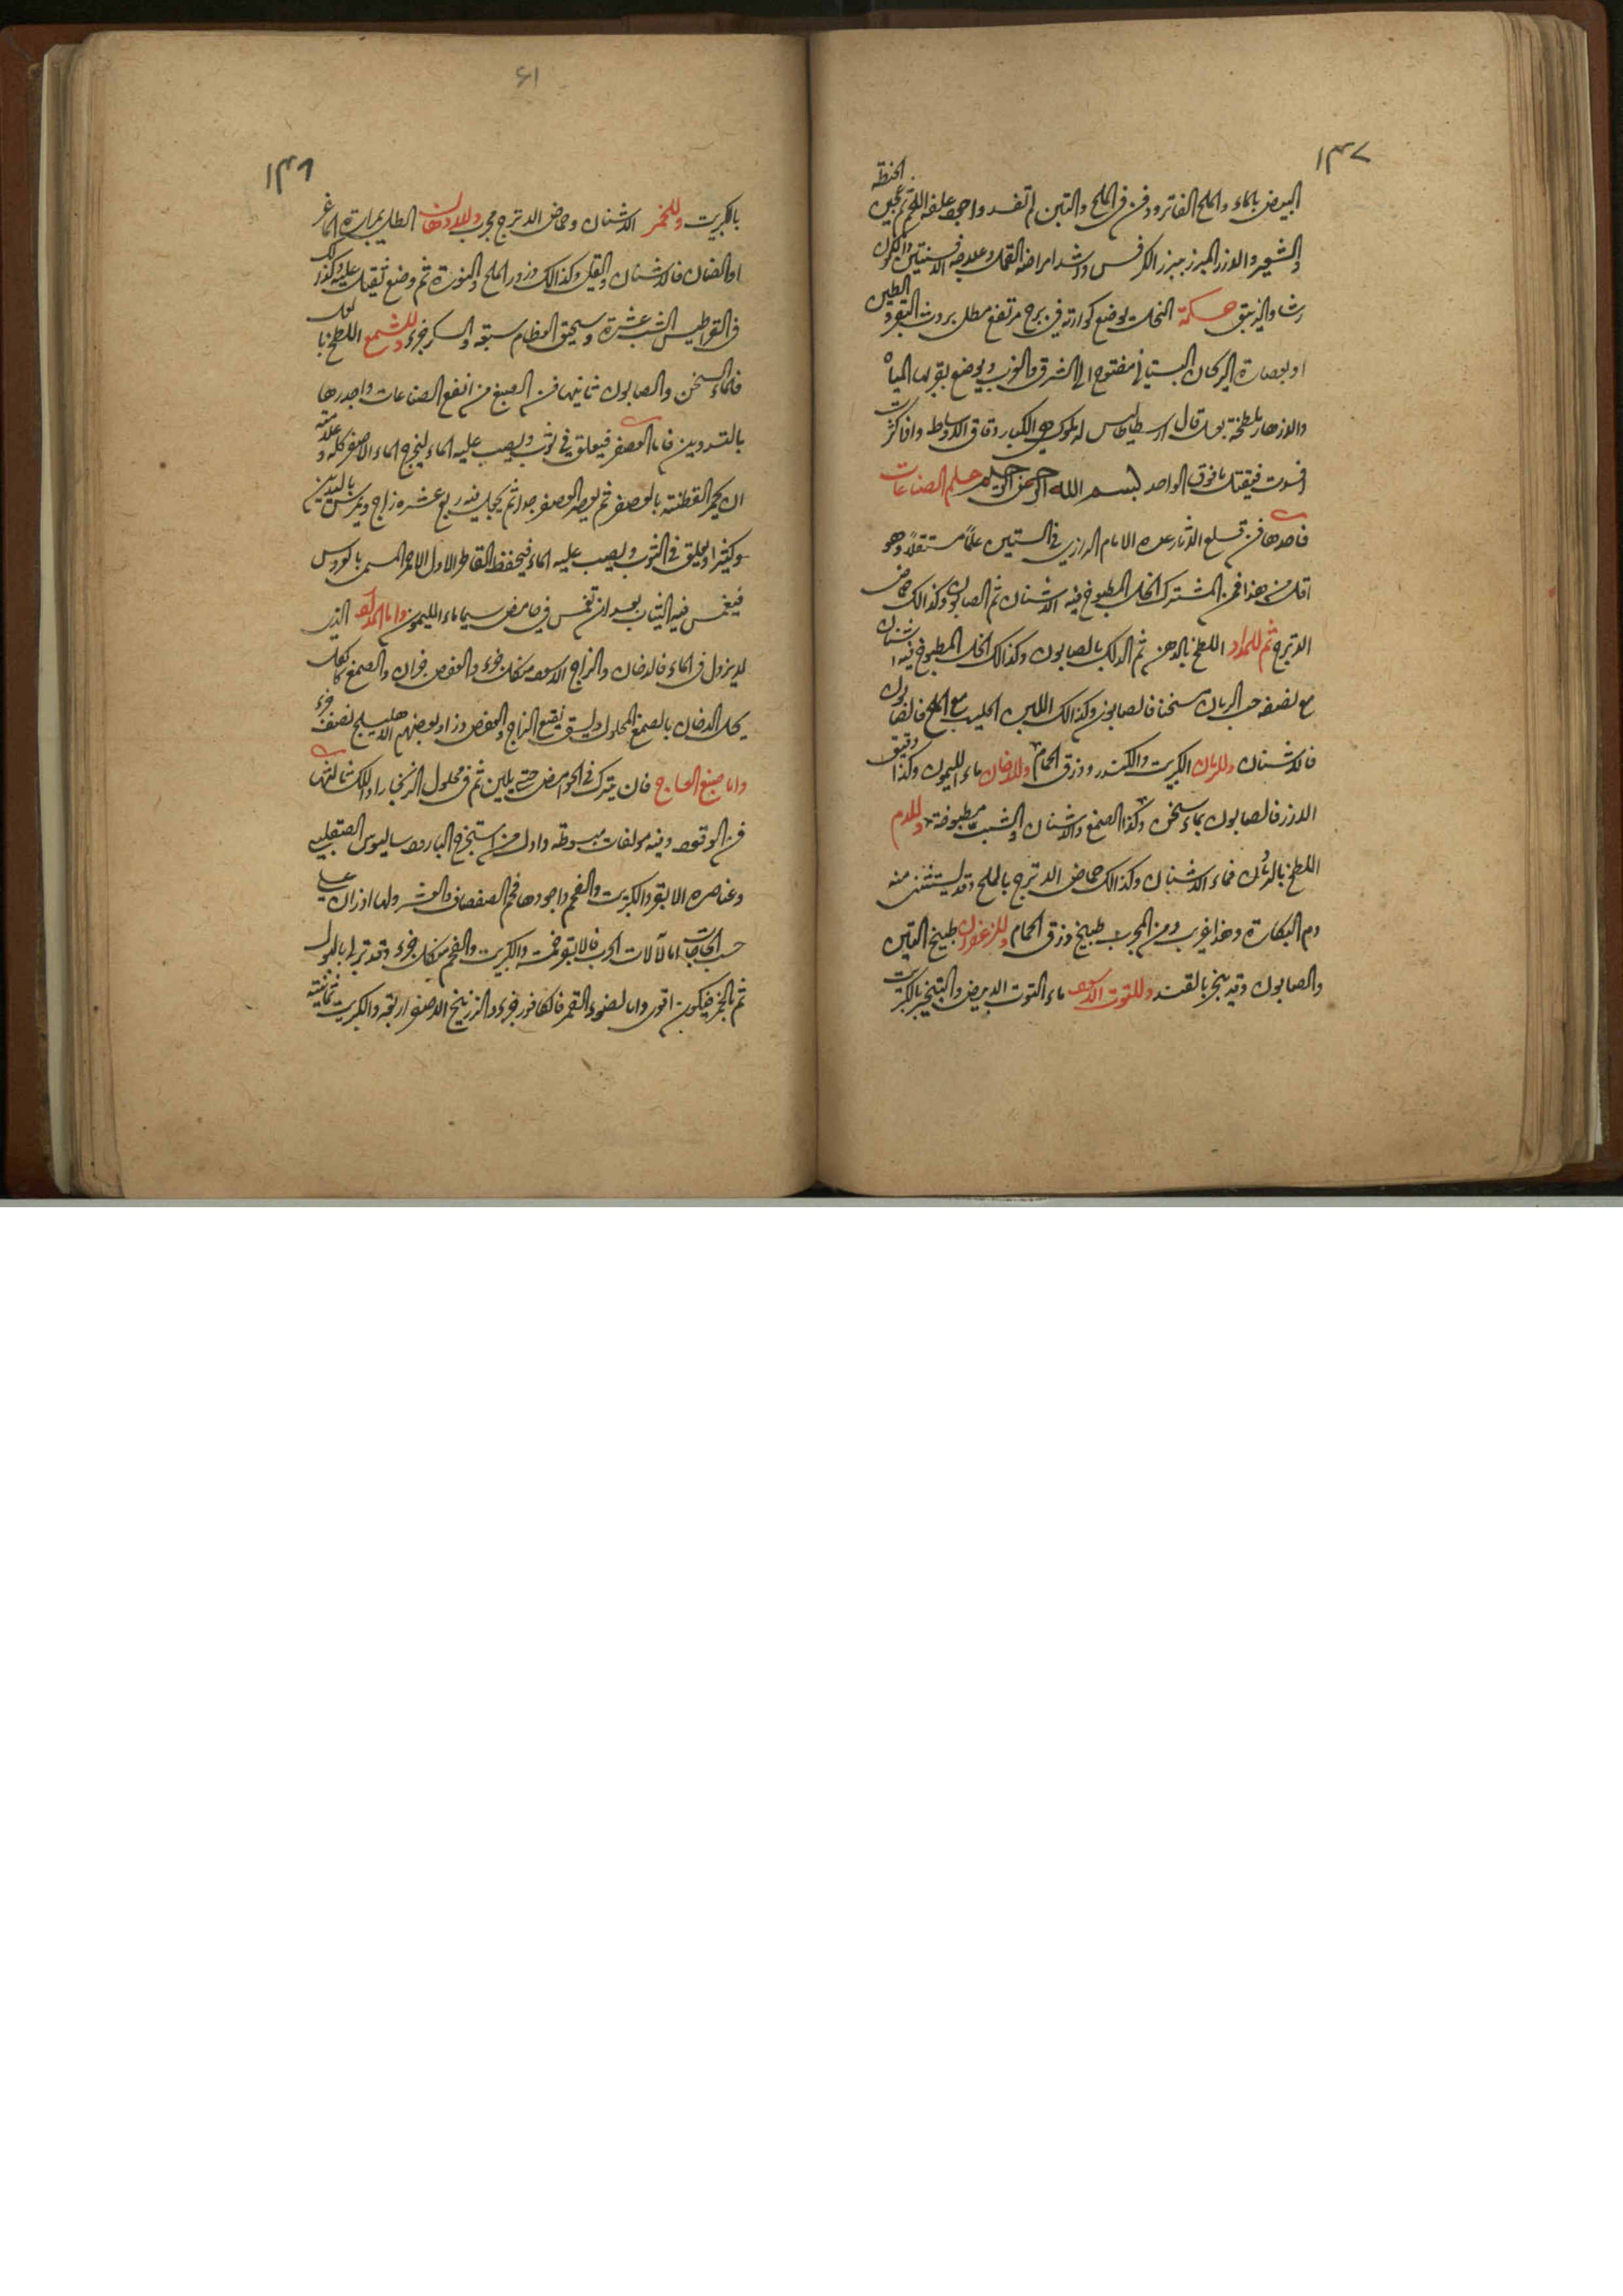 ١٣٧
الحنطة
البيض بالماء والملح الفاتر ودفن في الملح والتبن لم تفسد واجود علفه اللحم ثم عجين
والشعير والارز المبزر ببزر الكرفس واشد امراضه القمل وعلاجه الافسنتين والكمون
رشا والزيبق حكمة النحل يوضع كوارته في برج مرتفع مطل بروث البقر و الطين
او بعصارة الريحان البستاني مفتوح الى الشرق والغرب ويوضع بقربها المياه
والازهار ملطخة بعسل قال ارسطاطاليس له ملوك هي الكبار دقاق الاوساط واذا كثرت
افسدت فيقتل ما فوق الواحد بسم الله الرحمن الرحيم علم الصناعات
فاحدها فن قلع الاثار عده الامام الرازي في الستين علما مستقلا وهو
اقل من هذا فمن المشترك الخل المطبوخ فيه الاشنان ثم الصابون وكذالك حماض
الاترج ثم للمداد اللطخ بالدهن ثم الدلك بالصابون وكذالك الخل المطبوخ فيه اشنان
مع نصفه حب الرمان سخنا فالصابون وكذالك اللبن الحليب مع الملح فالصابون
فالاشنان وللرمان الكبريت والكندر وذرق الحمام وللدخان ماء الليمون وكذا دقيق
الارز فالصابون بماء سخن وكذا الصمغ والاشنان والشب مطبوخة وللدم
اللطخ بالرمل فماء الاشنان وكذالك حماض الاترج بالملح وقد يستثنى منه
دم البكارة وهذا غريب ومن المجرب طبيخ ذرق الحمام وللزعفران طبيخ التين
والصابون وقد يبخر بالقند وللتوت الاسود ماء التوت الابيض والتبخير بالكبريت
٦١
١٣٨
بالكبريت وللخمر الاشنان وحماض الاترج مجرب وللادهان الطلي بمرارة الماعز
او الضان فالاشنان والقلي وكذالك ذرور الملح والنورة ثم وضع ثقيل عليه وكذلك
في القراطيس الشب عشرة وسحيق العظام سبعة والسكر جزء وللشمع اللطخ بالعسل
فالماء السخن والصابون ثانيها فن الصبغ من انفع الصناعات واجدرها
بالتدوين فاما العصفر فيعلق في ثوب ويصب عليه الماء ليخرج الماء الاصفر كله وعلامته
ان يحمر القطنة بالعصفر ثم يعصر العصفر جدا ثم يجعل فيه ربع عشره زاج ويمرس باليدين
كثيرا ويعلق في الثوب ويصب عليه الماء فيحفظ القاطر الاول الاحمر المسمى بالعروس
فيغمس فيه الثياب بعد ان تغمس في حامض سيما ماء الليمون واما المداد الذي
لا يزول في الماء فالدخان والزاج الاسود من كل جزء والعفص جزان والصمغ كالكل
يحل الدخان بالصمغ المحلول ويسقى نقيع الزاج والعفص وزاد بعضهم الاهليلج نصف جزء
واما صبغ العاج فان يترك في الحوامض حتى يلين ثم في محلول الزنجار او اللك ثالثها
فن الوقود وفيه مولفات مبسوطة واول من استخرج البارود ساليوس الصقلبي
وعناصره الابقر والكبريت والفحم واجودها فحم الصفصاف والعشر ولها اوزان على
حسب الحاجات اما لالات الحرب فالابقر خمسة والكبريت والفحم من كل جزء وقد تربا بالبول
ثم بالخمر فيكون اقوى واما لضوء القمر فالكافور جزء والزرنيخ الاصفر اربعة والكبريت ثمانية